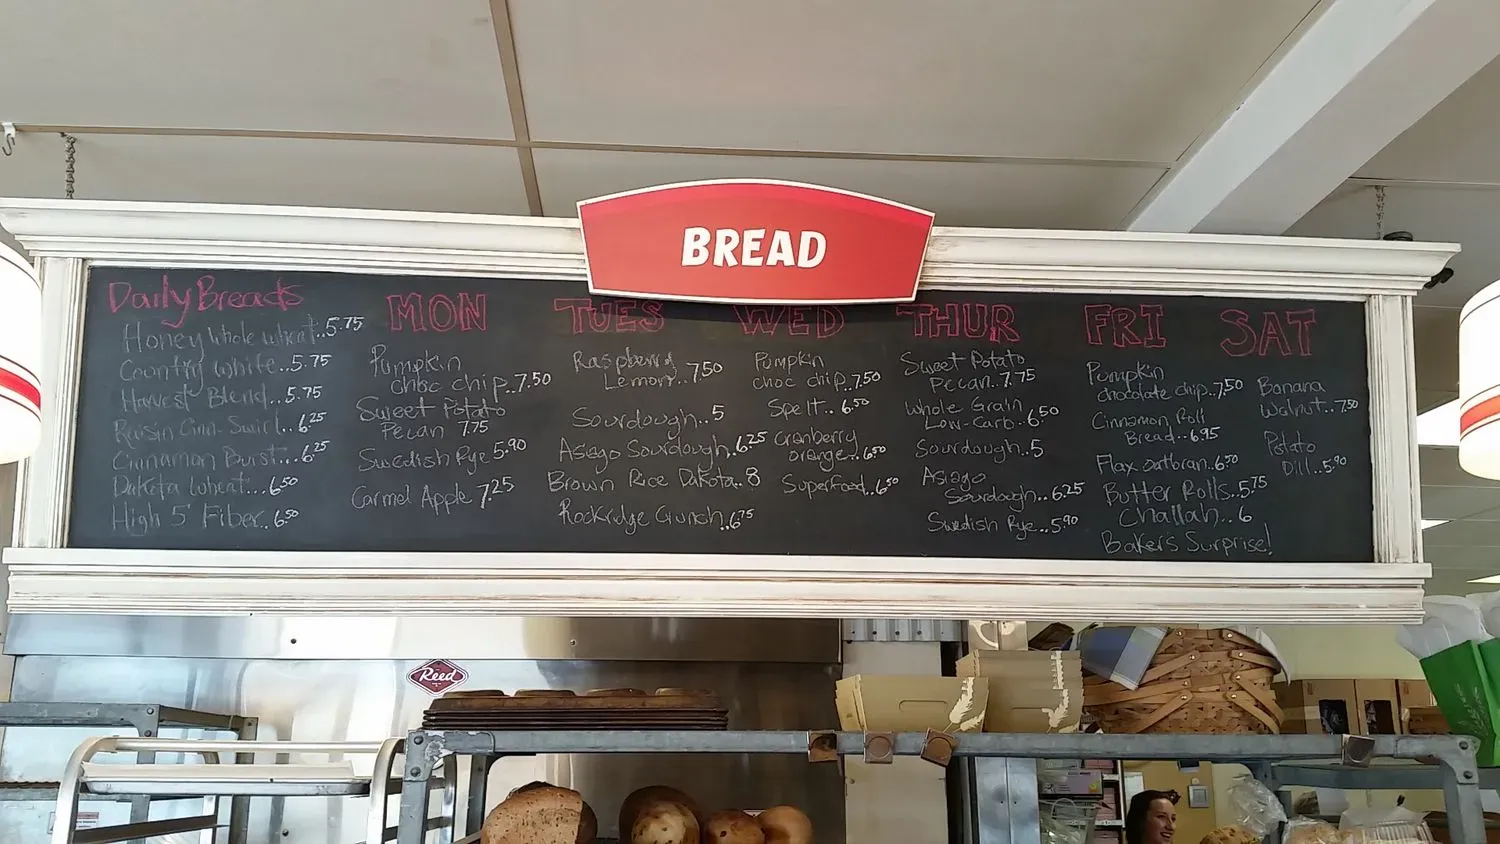 BREAD
Daily Breads
Honey whole wheat..5.75
Country white..5.75
Harvest Blend..5.75
Raisin Cinn. Swirl..6.25
Cinnamon Burst...6.25
Dakota wheat...6.50
High 5 Fiber..6.50
MON
Pumpkin
choc chip..7.50
Sweet Potato
Pecan 7.75
Swedish Rye 5.90
Carmel Apple 7.25
TUES
Raspberry
Lemon..7.50
Sourdough..5
Asiago Sourdough..6.25
Brown Rice Dakota..8
Rockridge Crunch..6.75
WED
Pumpkin
choc chip..7.50
Spelt..6.50
Cranberry
orange..6.50
Superfood..6.50
THUR
Sweet Potato
Pecan..7.75
Whole Grain
Low-Carb..6.50
Sourdough..5
Asiago
Sourdough..6.25
Swedish Rye..5.90
FRI
Pumpkin
chocolate chip..7.50
Cinnamon Roll
Bread..6.95
Flax oatbran..6.50
Butter Rolls..5.75
Challah..6
Bakers Surprise!
SAT
Banana
Walnut..7.50
Potato
Dill..5.90
Reed